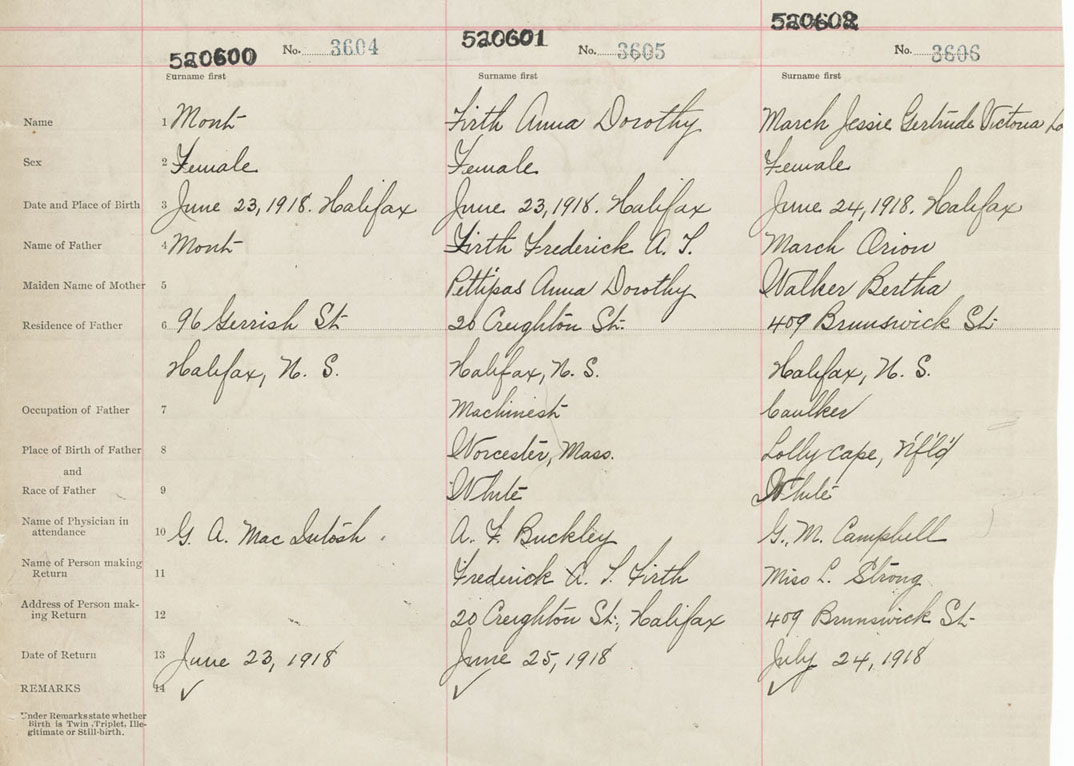 520600 No. 3604 520601 No. 3605 520602 No. 3606
Surname first Surname first Surname first
Name 1 Mont Firth Anna Dorothy March Jessie Gertrude Victoria
Sex 2 Female Female Female
Date and Place of Birth 3 June 23, 1918. Halifax June 23, 1918. Halifax June 24, 1918. Halifax
Name of Father 4 Mont Firth Frederick A. T. March Orion
Maiden Name of Mother 5 Pettipas Anna Dorothy Walker Bertha
Residence of Father 6 96 Gerrish St 20 Creighton St. 409 Brunswick St
Halifax, N. S. Halifax, N. S. Halifax, N. S.
Occupation of Father 7 Machinest Caulker
Place of Birth of Father 8 Worcester, Mass. Lolly cape, N'fl'd
and
Race of Father 9 White White
Name of Physician in
attendance 10 G. A. Mac Intosh. A. F Buckley G. M. Campbell
Name of Person making
Return 11 Frederick A. T. Firth Miss L. Strong
Address of Person mak-
ing Return 12 20 Creighton St., Halifax 409 Brunswick St
Date of Return 13 June 23, 1918 June 25, 1918 July 24, 1918
REMARKS 14 ✓ ✓ ✓
Under Remarks state whether
Birth is Twin, Triplet, Ille-
gitimate or Still-birth.